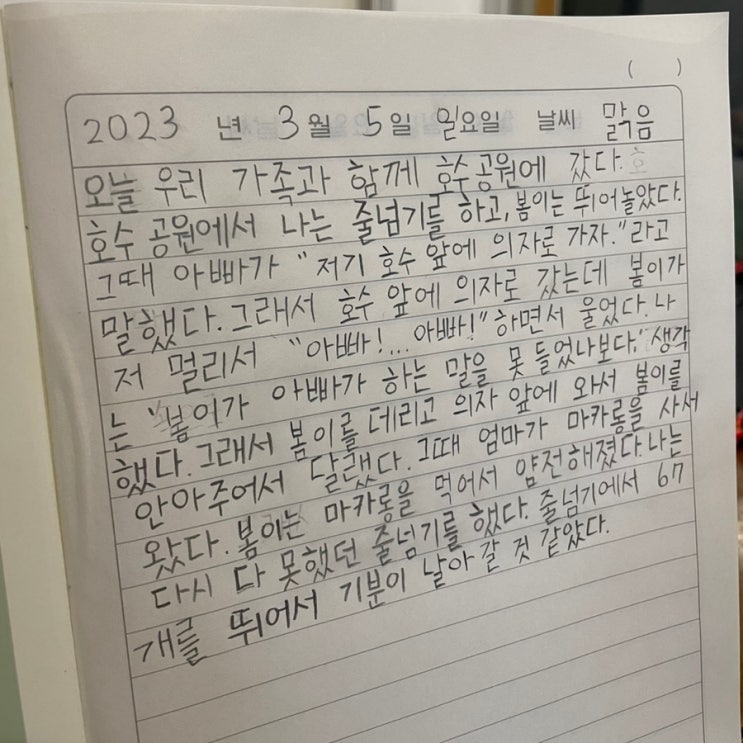 (    )
2023 년 3월 5일 일요일 날씨 맑음
오늘 우리 가족과 함께 호수공원에 갔다.
호수 공원에서 나는 줄넘기를 하고, 봄이는 뛰어놀았다.
그때 아빠가 "저기 호수 앞에 의자로 가자."라고
말했다. 그래서 호수 앞에 의자로 갔는데 봄이가
저 멀리서 "아빠!... 아빠!" 하면서 울었다. 나
는 "봄이가 아빠가 하는 말을 못 들었나보다." 생각
했다. 그래서 봄이를 데리고 의자 앞에 와서 봄이를
안아주어서 달랬다. 그때 엄마가 마카롱을 사서
왔다. 봄이는 마카롱을 먹어서 얌전해졌다. 나는
다시 다 못했던 줄넘기를 했다. 줄넘기에서 67
개를 뛰어서 기분이 날아 갈 것 같았다.